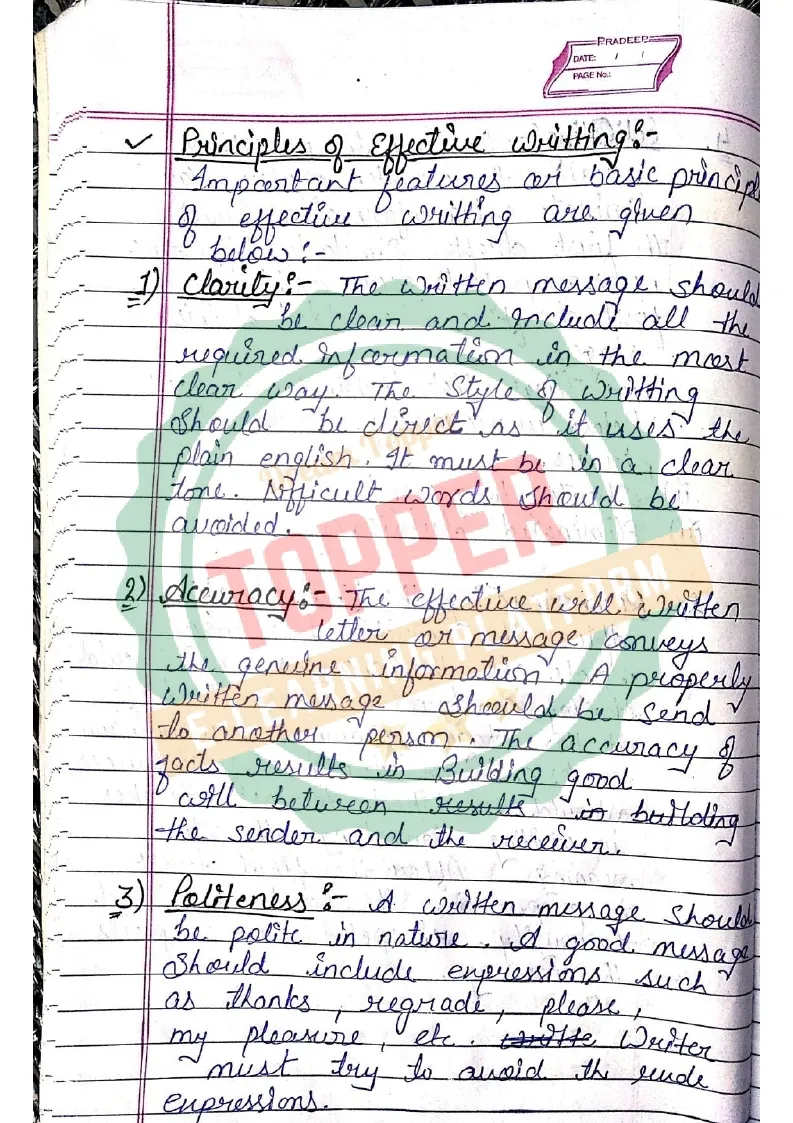 PRADEEP
DATE: / /
PAGE No.:
✓ Principles of Effective writting:-
Important features or basic principl
of effective writting are given
below:-
1) Clarity:- The written message should
be clear and include all the
required information in the most
clear way. The Style of writting
Should be direct as it uses the
plain english. It must be in a clear
tone. Difficult words should be
avoided.
2) Accuracy:- The effective well written
letter or message conveys
the genuine information. A properly
written message should be send
to another person. The accuracy of
facts results in Building good
will between results in building
the sender and the receiver.
3) Politeness:- A written message should
be polite in nature. A good message
Should include expressions such
as thanks, regrade, please,
my pleasure, etc. write Writer
must try to avoid the rude
expressions.
Dream Topper
TOPPER
E-LEARNING PLATFORM